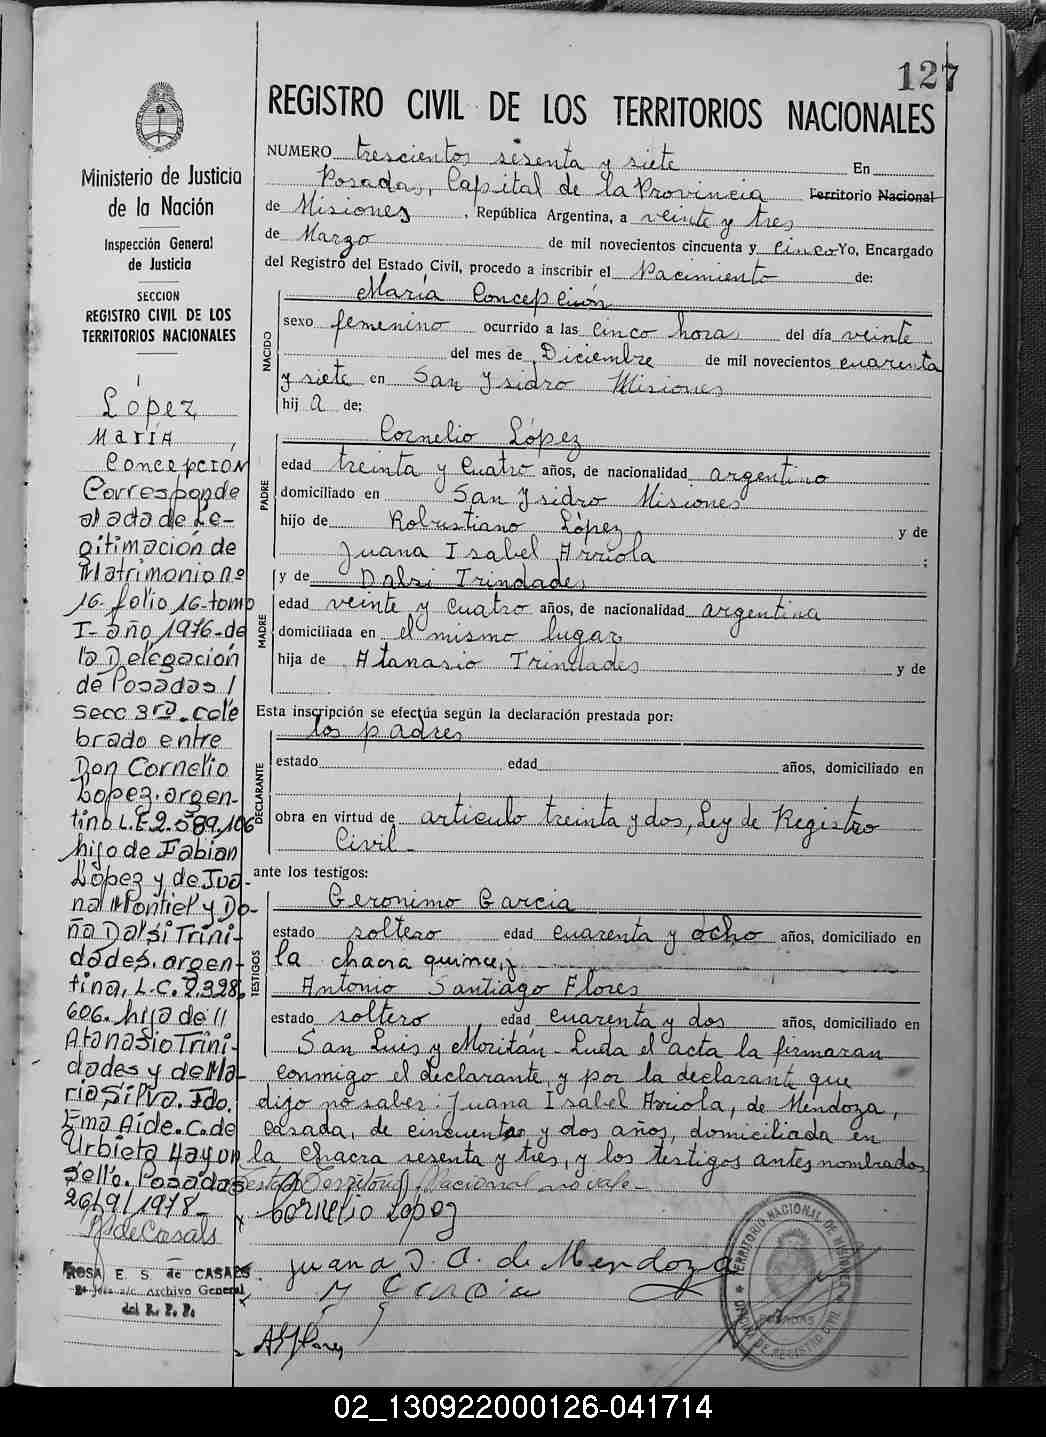 127
REGISTRO CIVIL DE LOS TERRITORIOS NACIONALES
NUMERO trescientos sesenta y siete En
Posadas, Capital de la Provincia Territorio Nacional
de Misiones, República Argentina, a veinte y tres
de Marzo de mil novecientos cincuenta y cinco Yo, Encargado
del Registro del Estado Civil, procedo a inscribir el Nacimiento de:
NACIDO
María Concepción
sexo femenino ocurrido a las cinco horas del día veinte
del mes de Diciembre de mil novecientos cuarenta
y siete en San Ysidro Misiones
hij a de:
PADRE
Cornelio López
edad treinta y cuatro años, de nacionalidad argentino
domiciliado en San Ysidro Misiones
hijo de Robustiano López y de
Juana Isabel Arriola ;
y de Dalsi Trindades
MADRE
edad veinte y cuatro años, de nacionalidad argentina
domiciliada en el mismo lugar
hija de Atanasio Trindades y de
Esta inscripción se efectúa según la declaración prestada por:
DECLARANTE
los padres
estado edad años, domiciliado en
obra en virtud de articulo treinta y dos, Ley de Registro
Civil-
ante los testigos:
TESTIGOS
Geronimo Garcia
estado soltero edad cuarenta y ocho años, domiciliado en
la chacra quince, y
Antonio Santiago Flores
estado soltero edad cuarenta y dos años, domiciliado en
San Luis y Moritán- Leida el acta la firmaran
conmigo el declarante, y por la declarante que
dijo no saber: Juana Isabel Arriola, de Mendoza,
casada, de cincuenta y dos años, domiciliada en
la Chacra sesenta y tres, y los testigos antes nombrados
Territorio Nacional no vale-
Cornelio Lopez
Juana I. A. de Mendoza
Garcia
ASFlores
Ministerio de Justicia
de la Nación
Inspección General
de Justicia
SECCION
REGISTRO CIVIL DE LOS
TERRITORIOS NACIONALES
López
María
Concepción
Corresponde
al acta de Le-
gitimación de
Matrimonio nº
16. folio 16-tomo
I- año 1976-de
la Delegación
de Posadas /
secc 3ra. cele
brado entre
Don Cornelio
Lopez. argen-
tino L.E.2.589.106
hijo de Fabian
López y de Jua-
na Montiel y Do-
ña Dalsi Trini-
dades. argen-
tina, L.C.2.328.
606. hija de //
Atanasio Trini-
dades y de Ma-
ria Silva. Fdo.
Ema Aide. C. de
Urbieta Hay un
Sello. Posadas
26/9/1978-
R de Casals
ROSA E. S. de CASALS
Archivo General
del R. P. P.
TERRITORIO NACIONAL DE MISIONES
POSADAS
OFICINA DE REGISTRO CIVIL
02_130922000126-041714